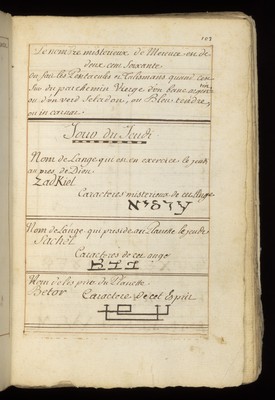 103
Le nombre misterieux de Mercure est de
deux cent soixante
on fait les Pentacules et Talismans quand
sur du parchemin Vierge d'un blanc
ou d'un verd Celadon, ou Bleu tendre,
ou incarnat.
Jour du Jeudi
Nom de Lange qui est en exercice le jeudi
aupres de Dieu
Zadkiel
Caracteres misterieux de cet Ange
Nom de Lange qui preside au Planette le jeudi
Sachel
Caracteres de cet ange
Nom de l'esprit du Planette
Betor Caractere de cet Esprit